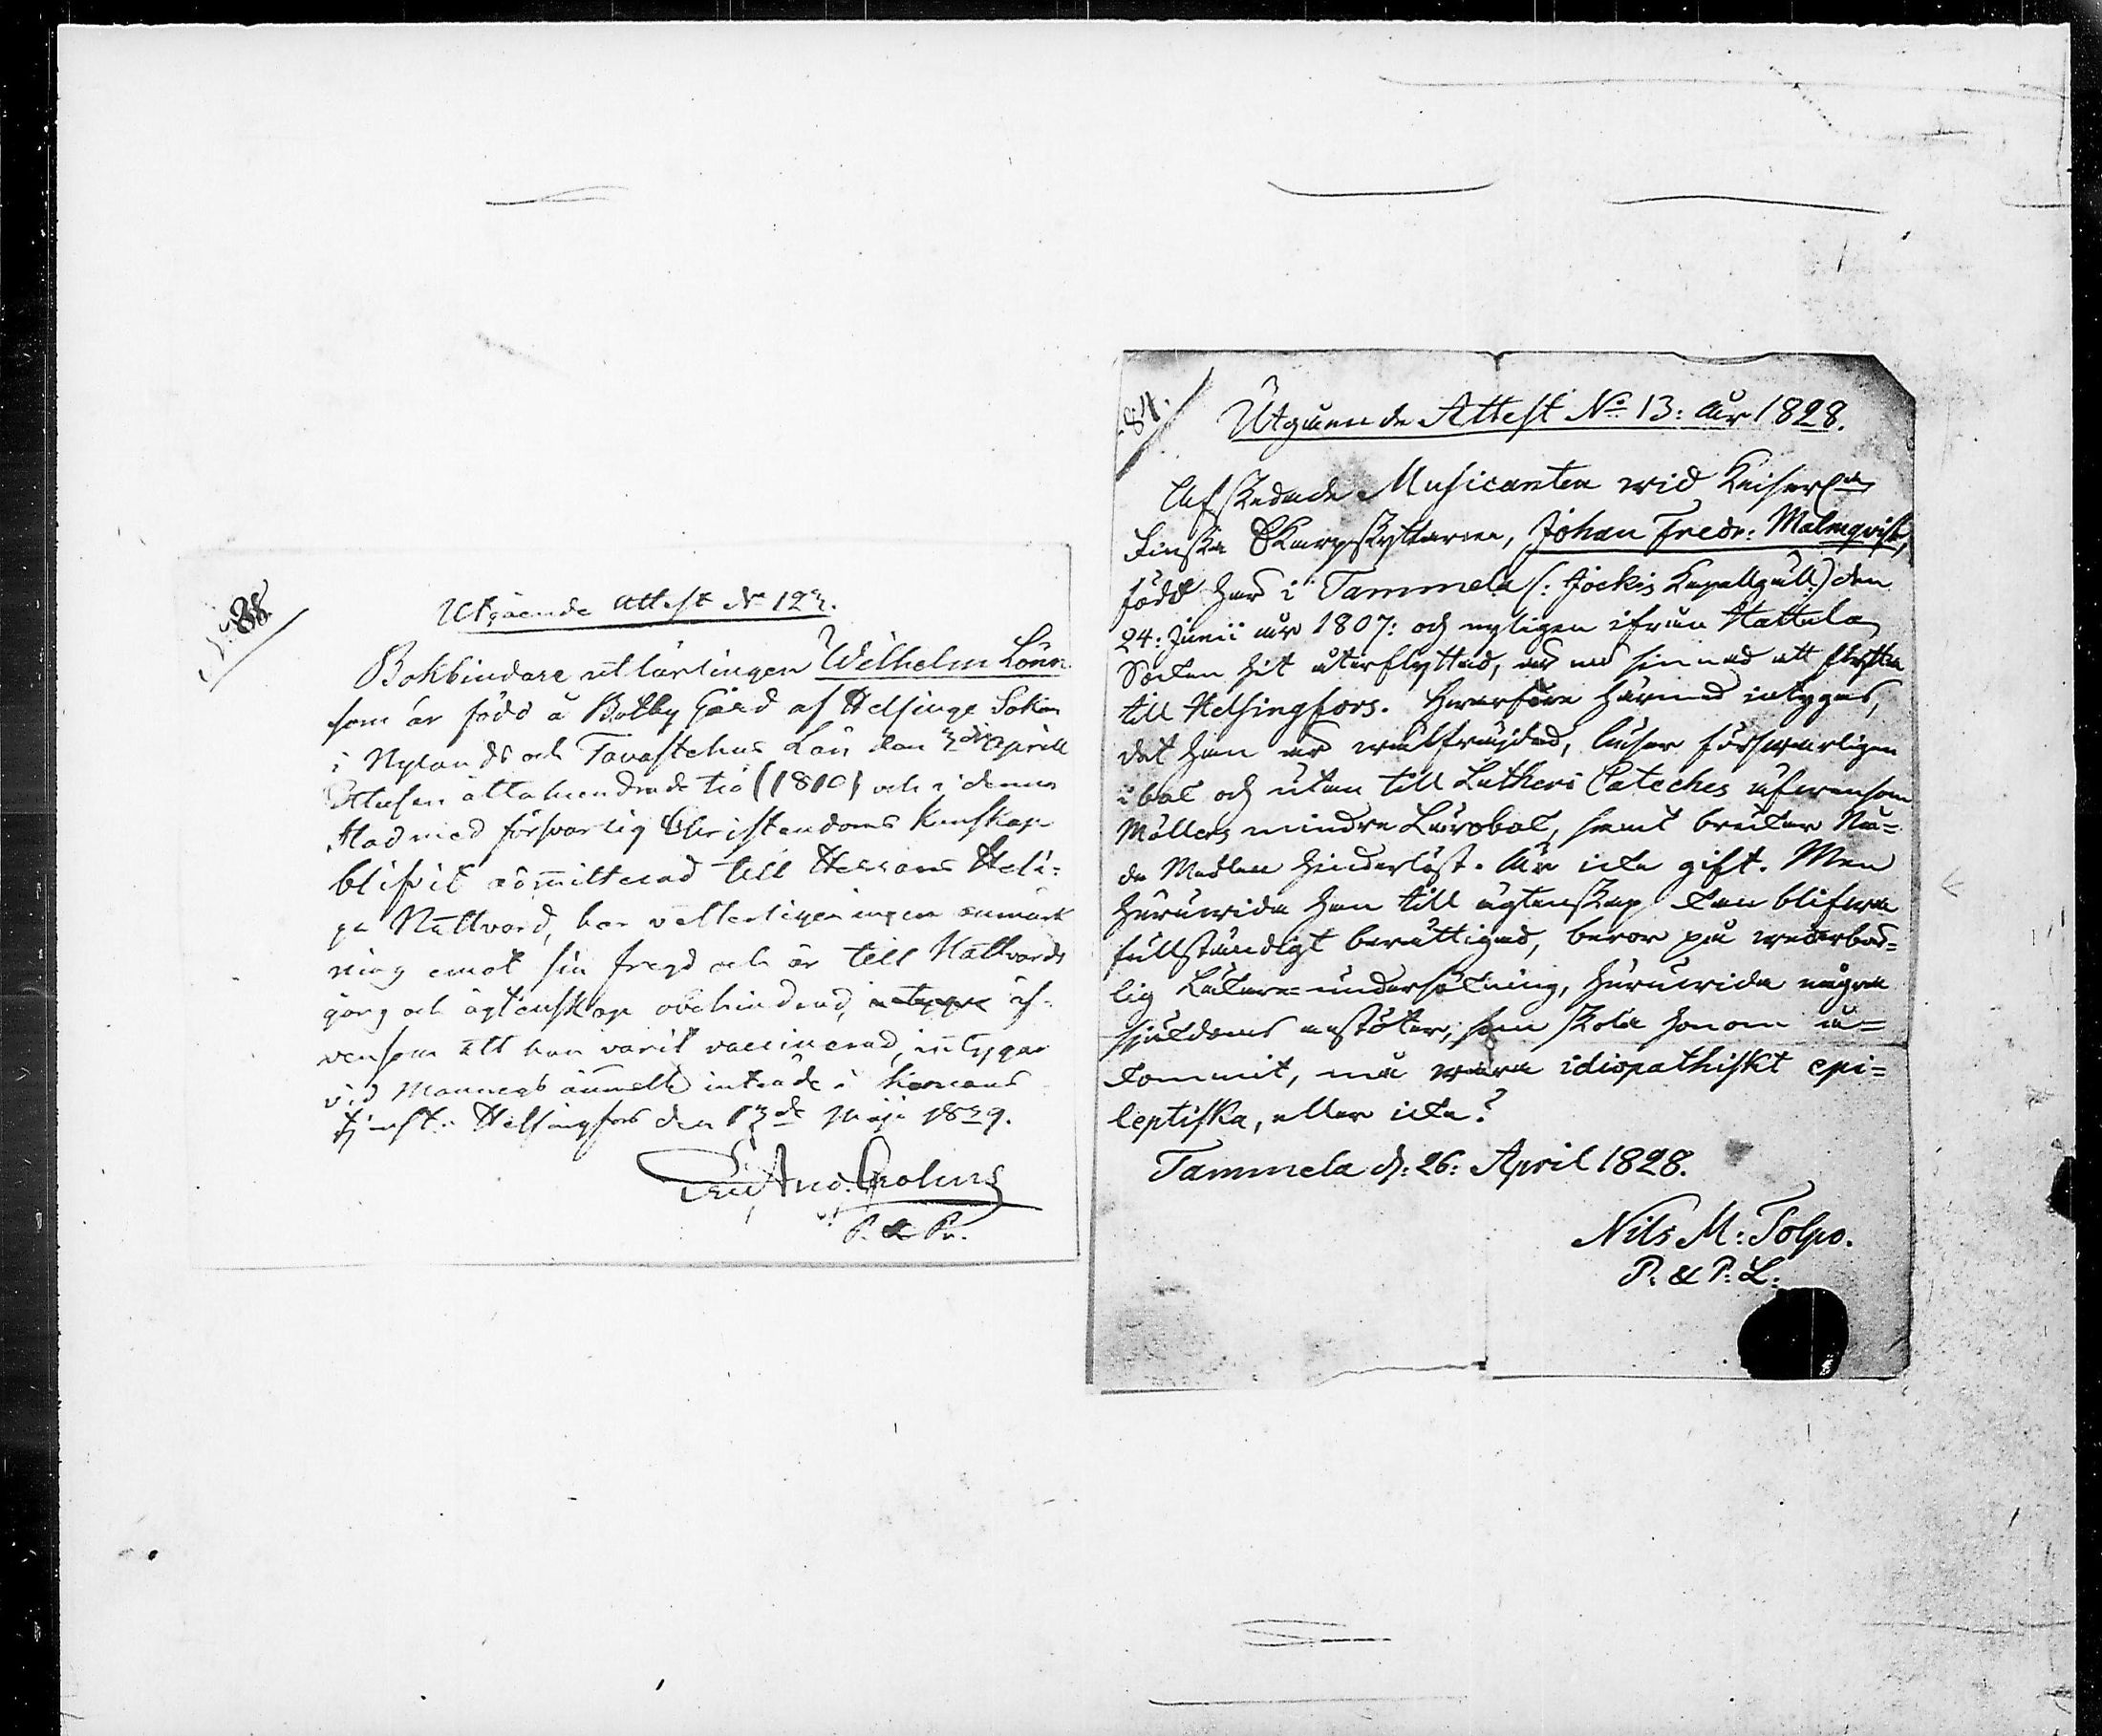 85.
Utgående Attest No 123.
Bokbindare utlärlingen Wilhelm Lönn
som är född å Botby Gård af Helsinge Sokn
i Nylands och Tavastehus Län den 3die April
Ettusen åttahundrade tio (1810) och i denna
stad med försvarlig Christendoms kunskap
blifvit admitterad till Herrans Heli-
ga Nattvard, har vetterligen ingen anmärk
ning emot sin fregd och är till Nattvards
gång och ägtenskap obehindrad, äf-
vensom att han varit vaccinerad, intygar
vid Mannens anmälde inträde i
tjenst. Helsingfors den 13de Maji 1829.
P. & Pr.
84.
Utgående Attest No 13: År 1828.
Afskedade Musicanten wid Keiserl.
Finska Skarpskyttarne, Johan Fredr: Malmqvist,
född här i Tammela (: Jockis Kapellgäll:) den
24: Junii år 1807: och nyligen ifrån Hattula
Socken hit återflyttad, är nu sinnad att flytta
till Helsingfors. Hwarföre härmed intygas,
det han är wälfräjdad, läser försvarligen
i bok och utan till Lutheri Cateches äfwensom
Möllers mindre Lärobok, samt brukar Nå-
de Medlen hinderlöst. Är icke gift. Men
huruwida han till ägtenskap kan blifwa
fullständigt berättigad, beror på wederbör-
lig Läkare-undersökning, huruwida några
sjukdoms anstöter, som skola honom å-
kommit, må wara idiopathiskt epi-
leptiska, eller icke?
Tammela d: 26: April 1828.
Nils M: Tolpo.
P. & P: L: